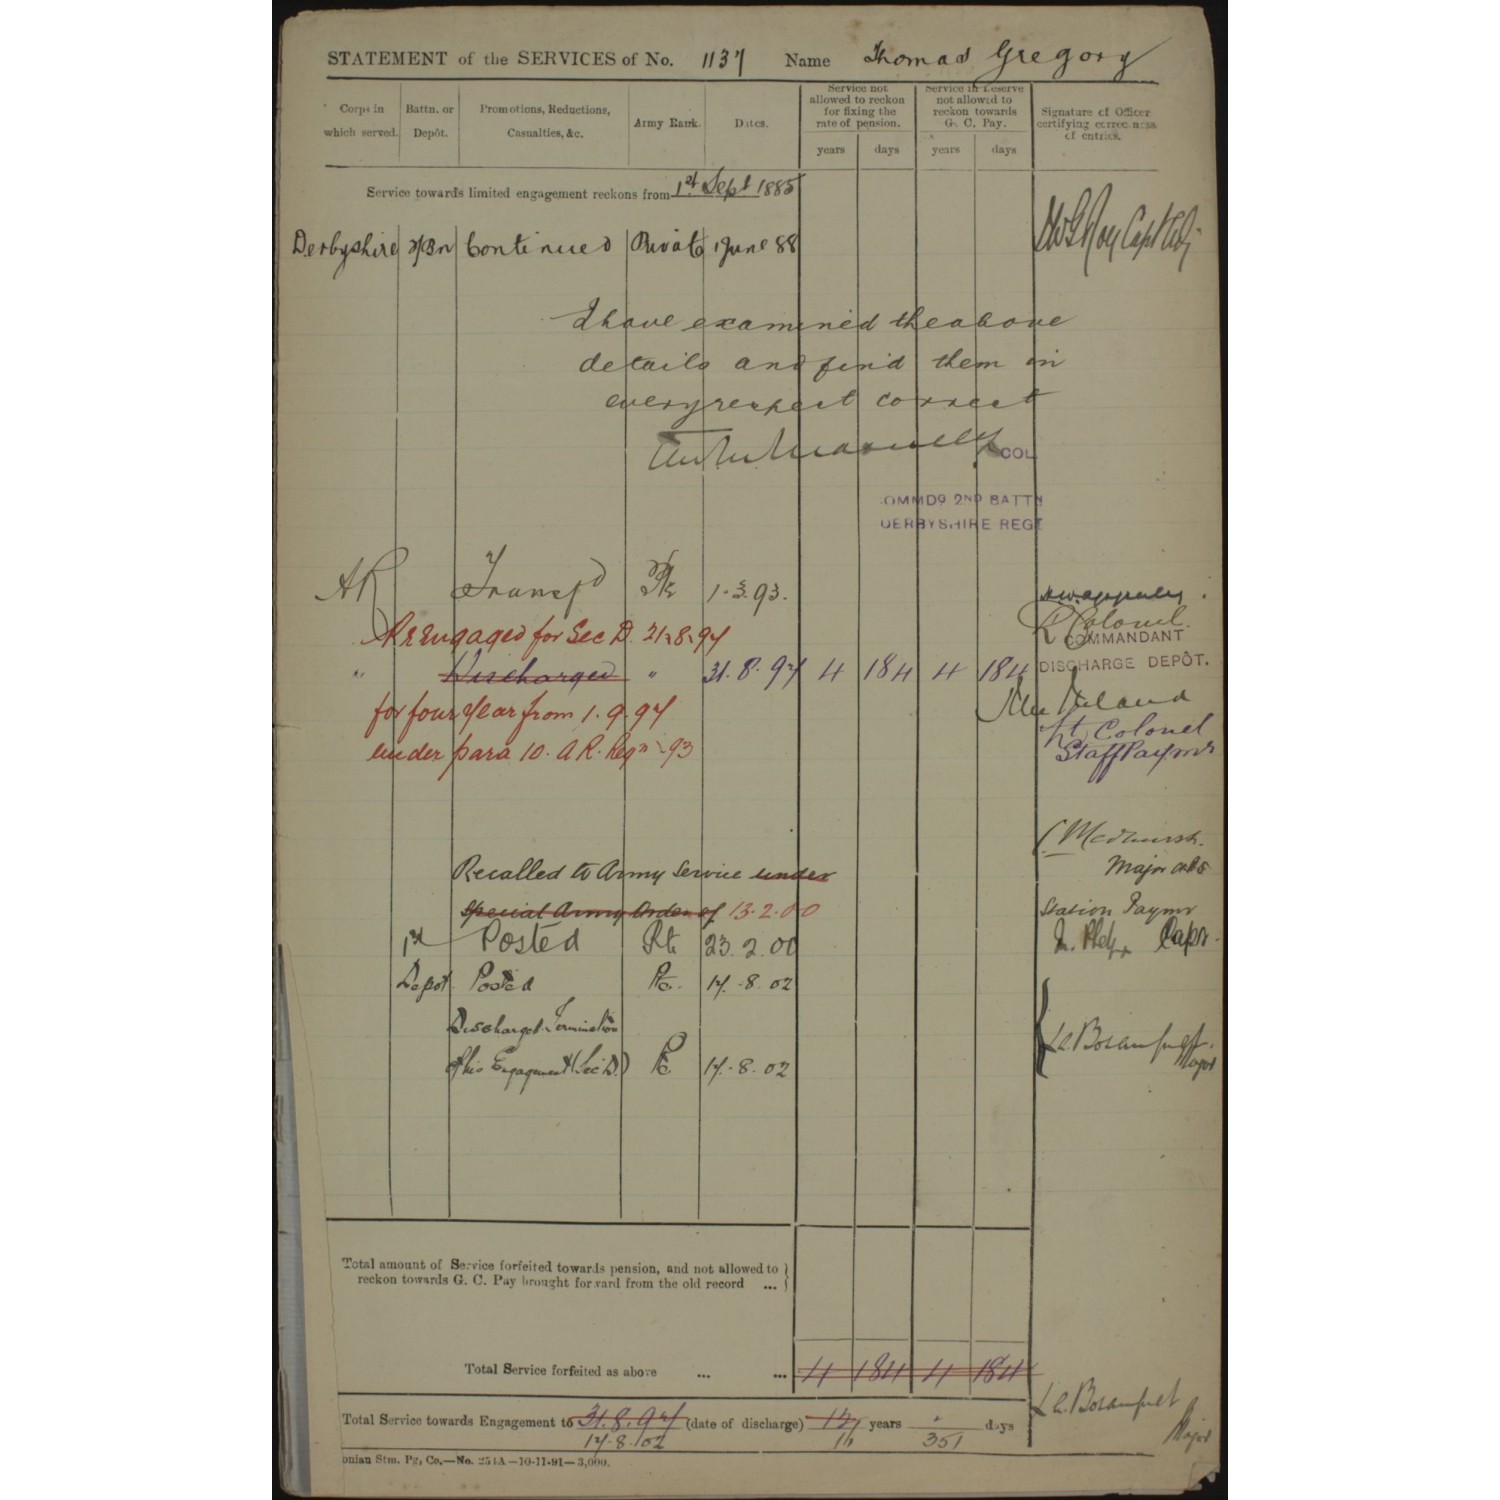 STATEMENT of the SERVICES of No. 1137 Name Thomas Gregory
Corps in which served.
Battn. or Depôt.
Promotions, Reductions, Casualties, &c.
Army Rank.
Dates.
Service not allowed to reckon for fixing the rate of pension.
Service in Reserve not allowed to reckon towards G. C. Pay.
Signature of Officer certifying correctness of entries.
years days years days
Service towards limited engagement reckons from 1st Sept 1885
Derbyshire 2/Bn Continued Private 1 June 88
I have examined the above
details and find them in
every respect correct
COL
COMMDG 2ND BATTN
DERBYSHIRE REGT
AR Transfd Pte 1.3.93.
Lt Colonel
COMMANDANT
Reengaged for Sec D. 21.8.97
DISCHARGE DEPÔT.
" Discharged " 31.8.97 4 184 4 184
for four year from 1.9.97
Lt Colonel
under para 10. A.R. Regns 93
Staff Paymr
Major
Recalled to Army Service under
special Army Order of 13.2.00
Station Paymr
1st Posted Pte 23.2.00 Capt.
Depot Posted Pte. 17.8.02
Discharged Termination
of his Engagement (Sec D.) Pte 17.8.02
L.C. Bosanquet
Major
Total amount of Service forfeited towards pension, and not allowed to
reckon towards G. C. Pay brought forward from the old record ...
Total Service forfeited as above ... ... 4 184 4 184
L.C. Bosanquet
Major
Total Service towards Engagement to 31.8.97 (date of discharge) 12 years " days
17.8.02 16 351
onian Stm. Pg, Co.—No. 254A—10-11-91—3,000.